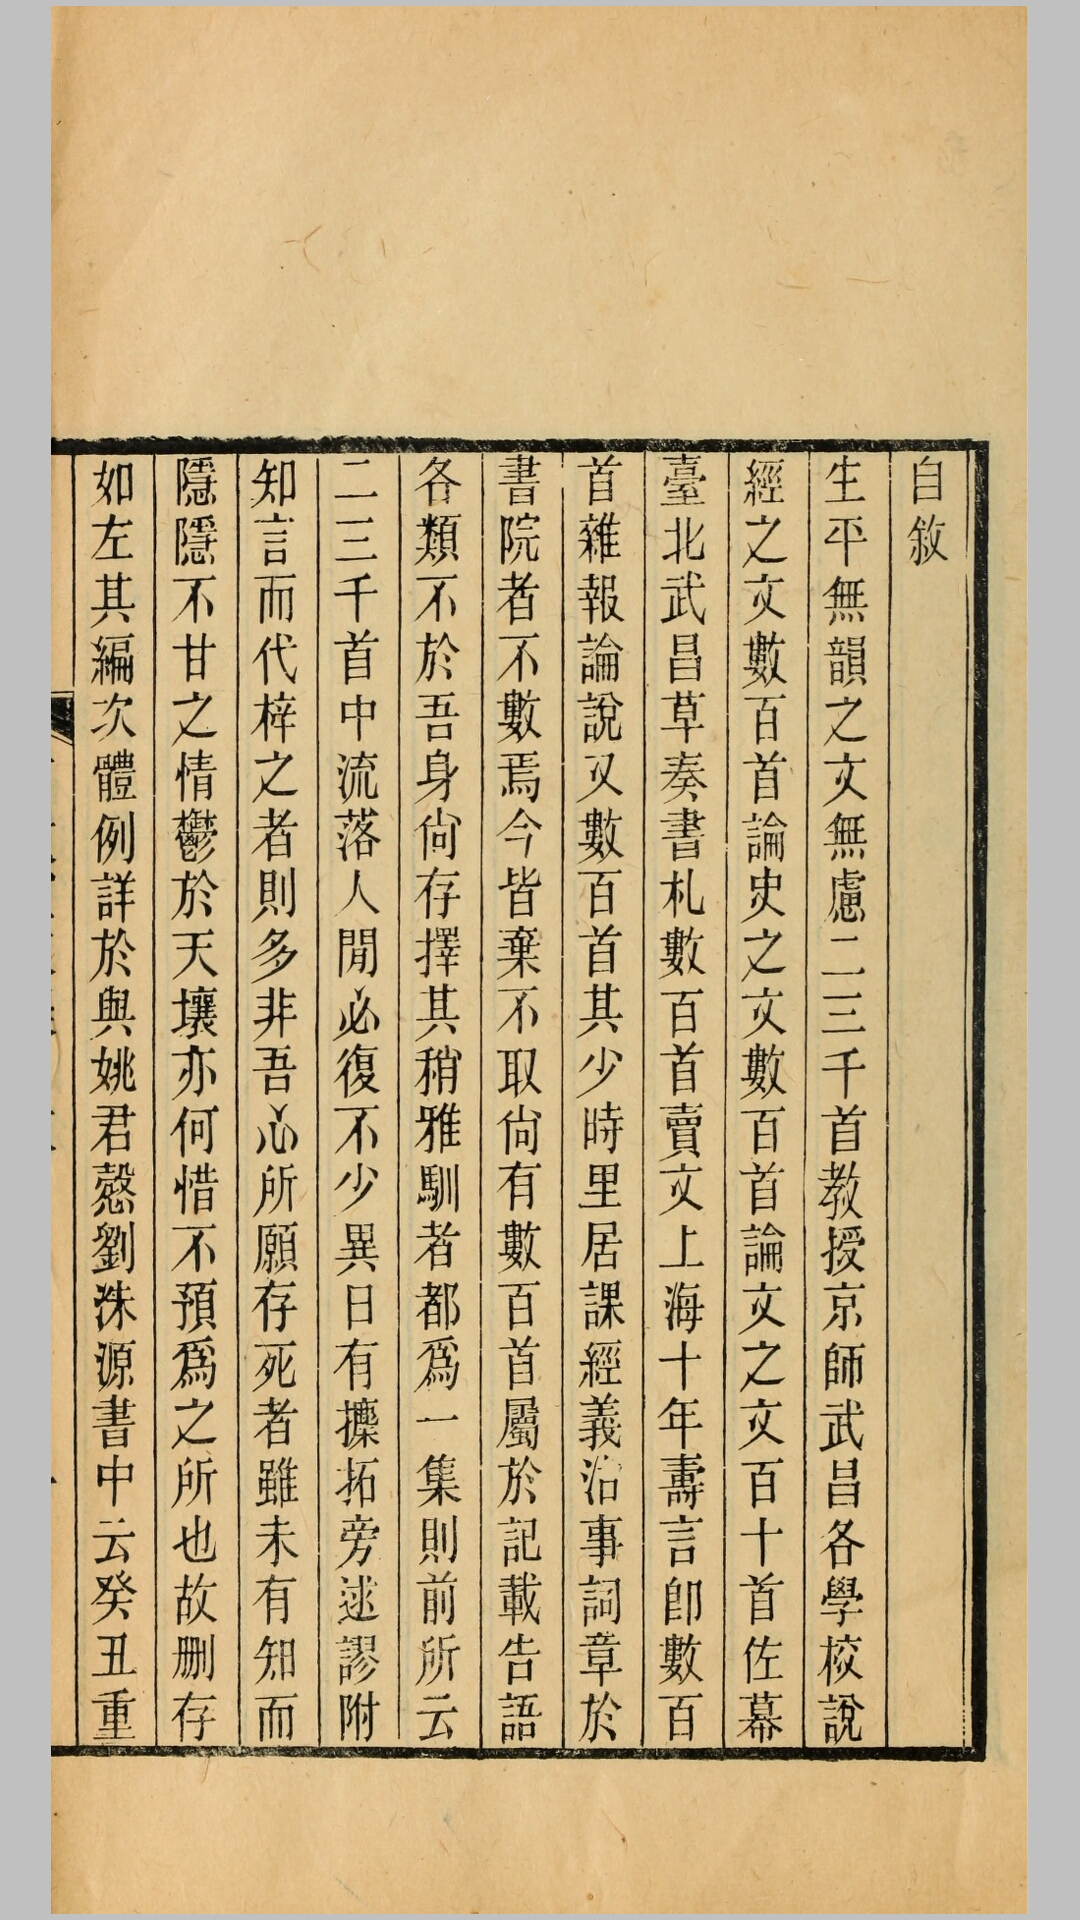 自敘
生平無韻之文無慮二三千首教授京師武昌各學校說
經之文數百首論史之文數百首論文之文百十首佐幕
臺北武昌草奏書札數百首賣文上海十年壽言卽數百
首雜報論說又數百首其少時里居課經義治事詞章於
書院者不數焉今皆棄不取尙有數百首屬於記載告語
各類不於吾身尙存擇其稍雅馴者都爲一集則前所云
二三千首中流落人閒必復不少異日有攈拓旁逑謬附
知言而代梓之者則多非吾心所願存死者雖未有知而
隱隱不甘之情鬱於天壤亦何惜不預爲之所也故删存
如左其編次體例詳於與姚君愨劉洙源書中云癸丑重